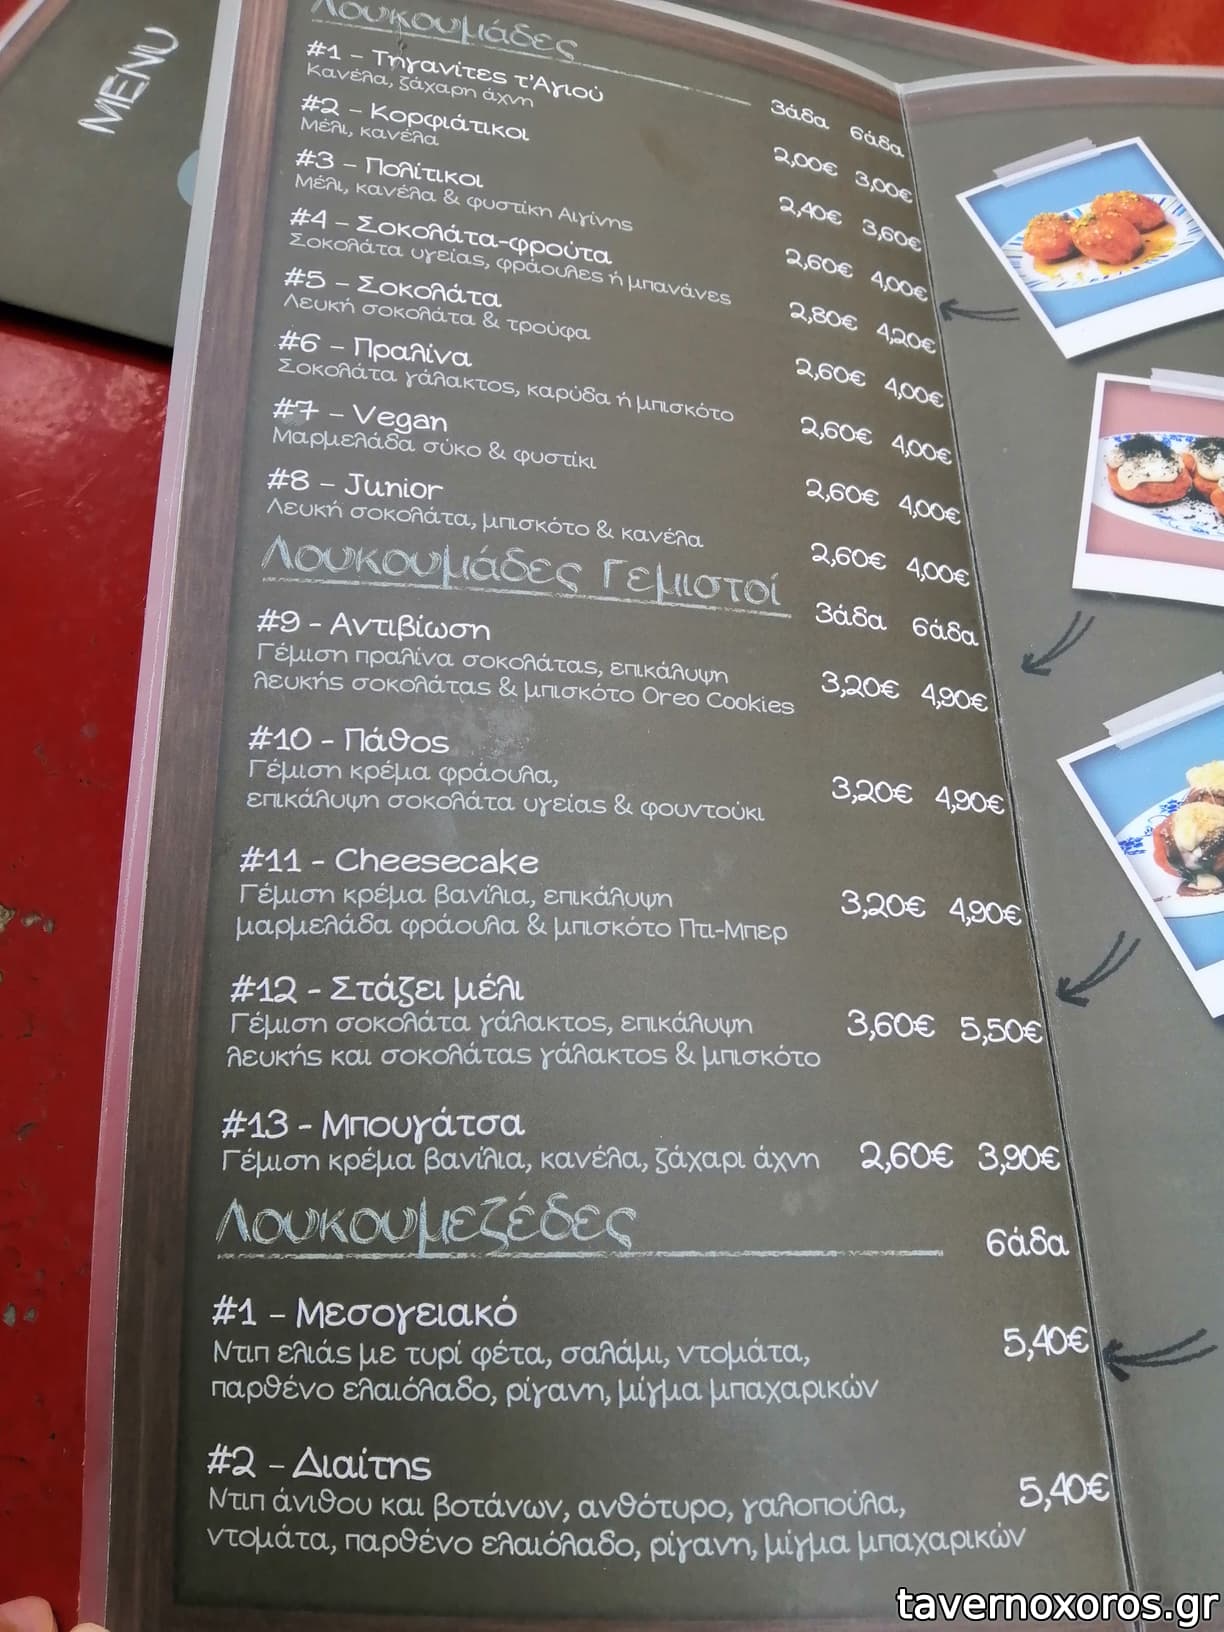 MENU
Λουκουμάδες
3άδα 6άδα
#1 – Τηγανίτες τ'Αγιού
Κανέλα, ζάχαρη άχνη
2,00€ 3,00€
#2 – Κορφιάτικοι
Μέλι, κανέλα
2,40€ 3,60€
#3 – Πολίτικοι
Μέλι, κανέλα & φυστίκη Αιγίνης
2,60€ 4,00€
#4 – Σοκολάτα-φρούτα
Σοκολάτα υγείας, φράουλες ή μπανάνες
2,80€ 4,20€
#5 – Σοκολάτα
Λευκή σοκολάτα & τρούφα
2,60€ 4,00€
#6 – Πραλίνα
Σοκολάτα γάλακτος, καρύδα ή μπισκότο
2,60€ 4,00€
#7 – Vegan
Μαρμελάδα σύκο & φυστίκι
2,60€ 4,00€
#8 – Junior
Λευκή σοκολάτα, μπισκότο & κανέλα
2,60€ 4,00€
Λουκουμάδες Γεμιστοί
3άδα 6άδα
#9 - Αντιβίωση
Γέμιση πραλίνα σοκολάτας, επικάλυψη
λευκής σοκολάτας & μπισκότο Oreo Cookies
3,20€ 4,90€
#10 - Πάθος
Γέμιση κρέμα φράουλα,
επικάλυψη σοκολάτα υγείας & φουντούκι
3,20€ 4,90€
#11 - Cheesecake
Γέμιση κρέμα βανίλια, επικάλυψη
μαρμελάδα φράουλα & μπισκότο Πτι-Μπερ
3,20€ 4,90€
#12 - Στάζει μέλι
Γέμιση σοκολάτα γάλακτος, επικάλυψη
λευκής και σοκολάτας γάλακτος & μπισκότο
3,60€ 5,50€
#13 - Μπουγάτσα
Γέμιση κρέμα βανίλια, κανέλα, ζάχαρι άχνη 2,60€ 3,90€
Λουκουμεζέδες
6άδα
#1 – Μεσογειακό
Ντιπ ελιάς με τυρί φέτα, σαλάμι, ντομάτα,
παρθένο ελαιόλαδο, ρίγανη, μίγμα μπαχαρικών
5,40€
#2 – Διαίτης
Ντιπ άνιθου και βοτάνων, ανθότυρο, γαλοπούλα,
ντομάτα, παρθένο ελαιόλαδο, ρίγανη, μίγμα μπαχαρικών
5,40€
tavernoxoros.gr